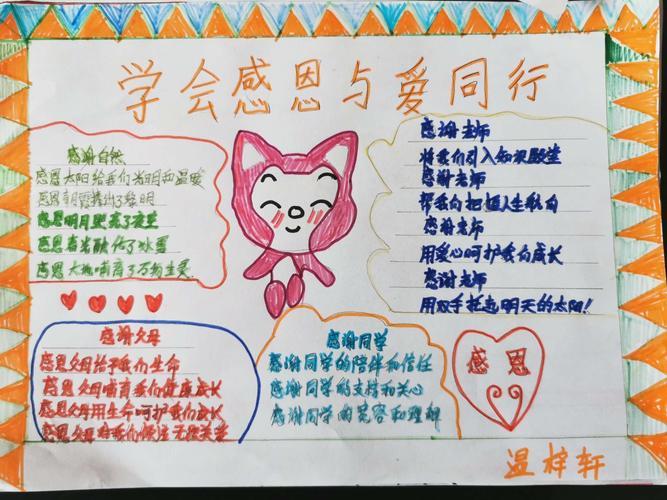 学会感恩与爱同行
感谢自然
感恩太阳给我们光明和温暖
感恩明月照亮了夜空
感恩春光融化了冰雪
感恩大地哺育了万物生灵
感谢老师
将我们引入知识殿堂
感谢老师
帮我们把握人生航向
感谢老师
用爱心呵护我们成长
感谢老师
用双手托起明天的太阳!
感谢父母
感恩父母给予我们生命
感恩父母哺育我们健康成长
感恩父母用生命呵护我们成长
感恩父母将我们倾注无限关爱
感谢同学
感谢同学的陪伴和信任
感谢同学的支持和关心
感谢同学的宽容和理解
感恩
温梓轩